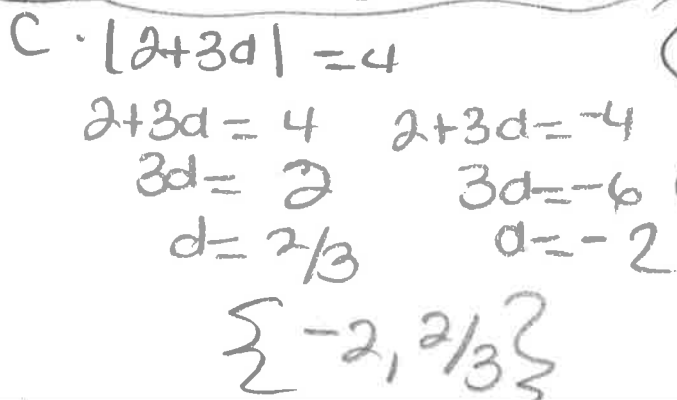 C. |2+3d| = 4
2+3d = 4 2+3d = -4
3d = 2 3d = -6
d = 2/3 d = -2
{-2, 2/3}